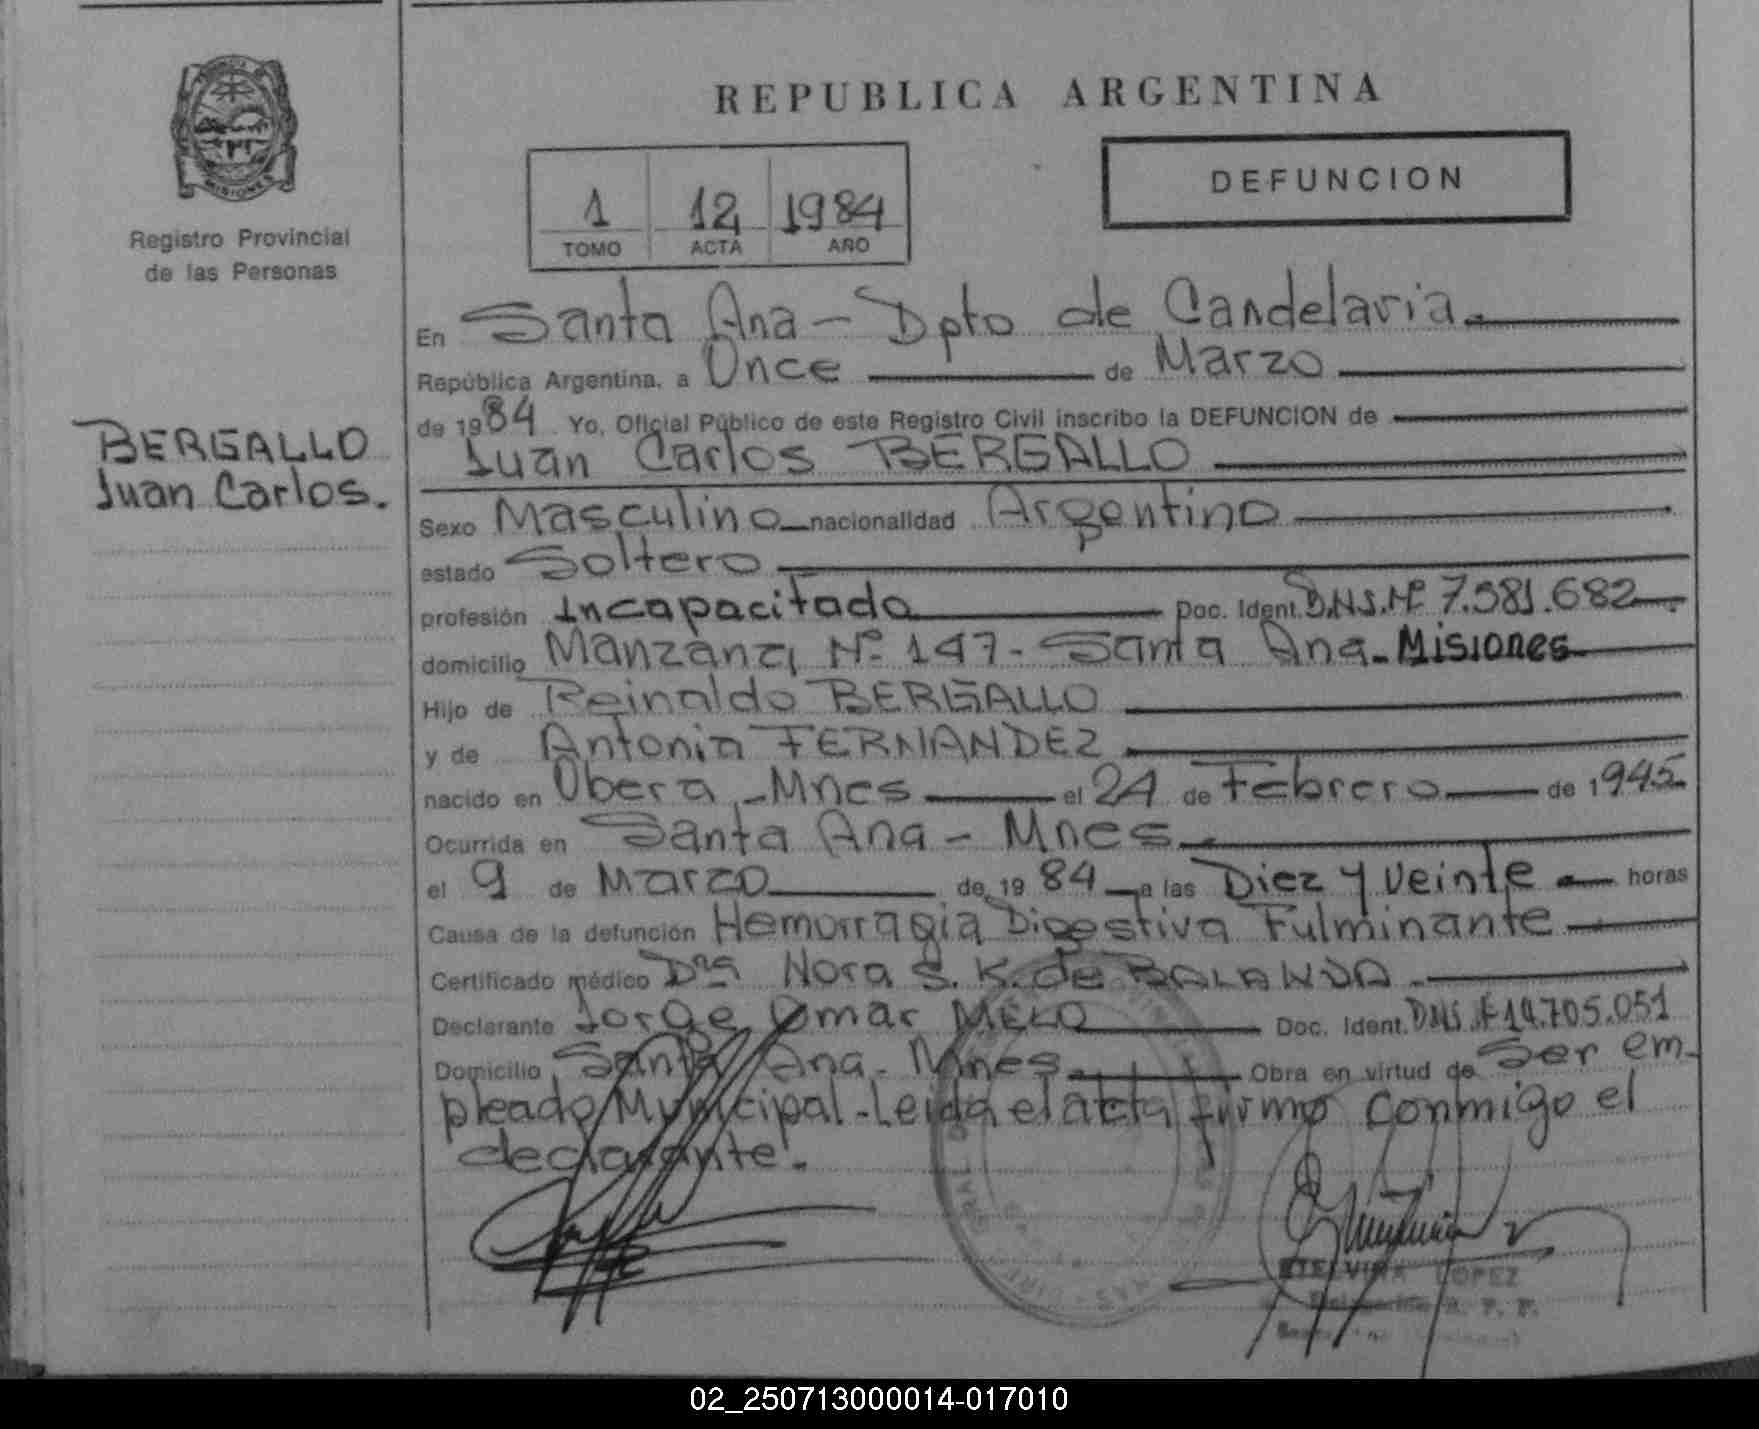 REPUBLICA ARGENTINA
MISIONES
Registro Provincial
de las Personas
1 12 1984
TOMO ACTA AÑO
DEFUNCION
BERGALLO
Juan Carlos.
En Santa Ana - Dpto de Candelaria.
República Argentina, a Once de Marzo
de 1984 Yo, Oficial Público de este Registro Civil inscribo la DEFUNCION de
Juan Carlos BERGALLO
Sexo Masculino nacionalidad Argentino
estado Soltero
profesión Incapacitado Doc. Ident. D.N.I. Nº 7.581.682
domicilio Manzana Nº 147 - Santa Ana - Misiones
Hijo de Reinaldo BERGALLO
y de Antonia FERNANDEZ
nacido en Obera - Mnes el 24 de Febrero de 1945
Ocurrida en Santa Ana - Mnes.
el 9 de Marzo de 1984 a las Diez y veinte horas
Causa de la defunción Hemorragia Digestiva Fulminante
Certificado médico Dra Nora S. K. de BALANDA.
Declarante Jorge Omar MELO Doc. Ident. DNI. # 14.705.051
Domicilio Santa Ana - Mnes. Obra en virtud de Ser em-
pleado Municipal - Leida el acta firmo conmigo el
declarante.
ETELVINA LOPEZ
02_250713000014-017010